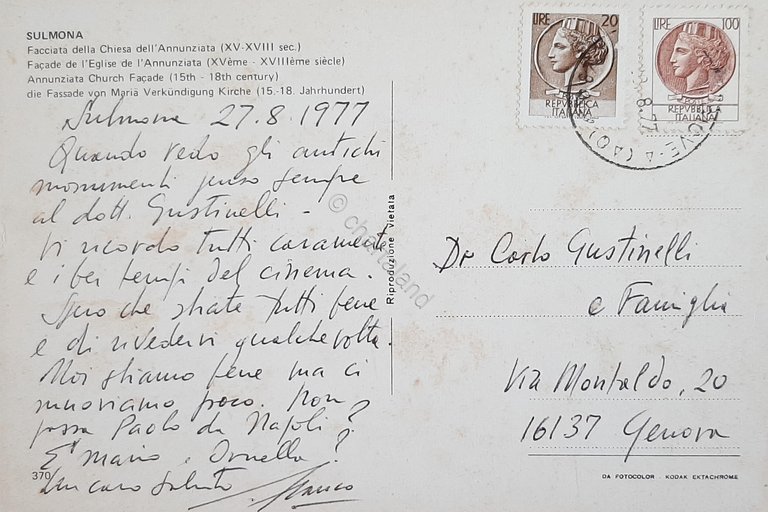 SULMONA
Facciata della Chiesa dell'Annunziata (XV-XVIII sec.)
Façade de l'Eglise de l'Annunziata (XVème - XVIIIème siècle)
Annunziata Church Façade (15th - 18th century)
die Fassade von Mariä Verkündigung Kirche (15.-18. Jahrhundert)
Sulmona 27.8.1977
Quando vedo gli antichi
monumenti penso sempre
al dott. Gustinelli -
Vi ricordo tutti caramente
e i bei tempi del cinema.
Spero che stiate tutti bene
e di rivedervi qualche volta.
Noi stiamo bene ma ci
muoviamo poco. Non
passa Paolo da Napoli?
E Mario e Ornella?
Un caro saluto Franco
370
Riproduzione vietata
© chartaland
LIRE 20
REPVBBLICA
ITALIANA
LIRE 100
REPVBBLICA
ITALIANA
8.77
(AO)
Dr Carlo Gustinelli
e Famiglia
Via Montaldo, 20
16137 Genova
DA FOTOCOLOR - KODAK EKTACHROME